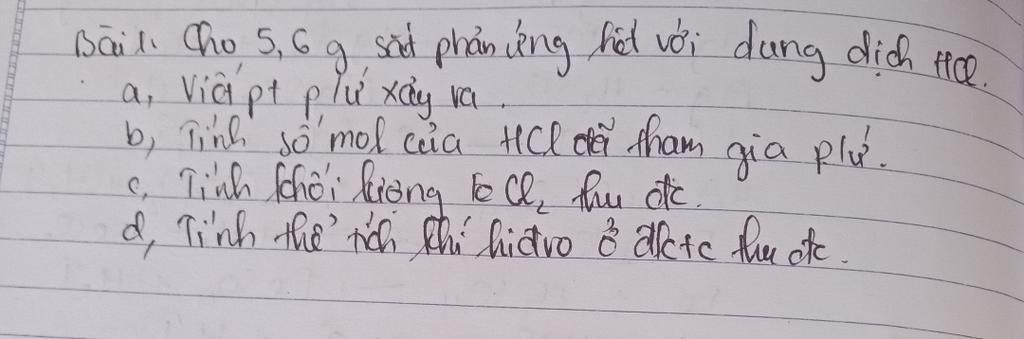 Bài 1. Cho 5,6 g sắt phản ứng hết với dung dịch HCl.
a, Viết pt p/ứ xảy ra.
b, Tính số mol của HCl đã tham gia p/ứ.
c, Tính khối lượng FeCl₂ thu đc.
d, Tính thể tích khí hiđro ở đktc thu đc.